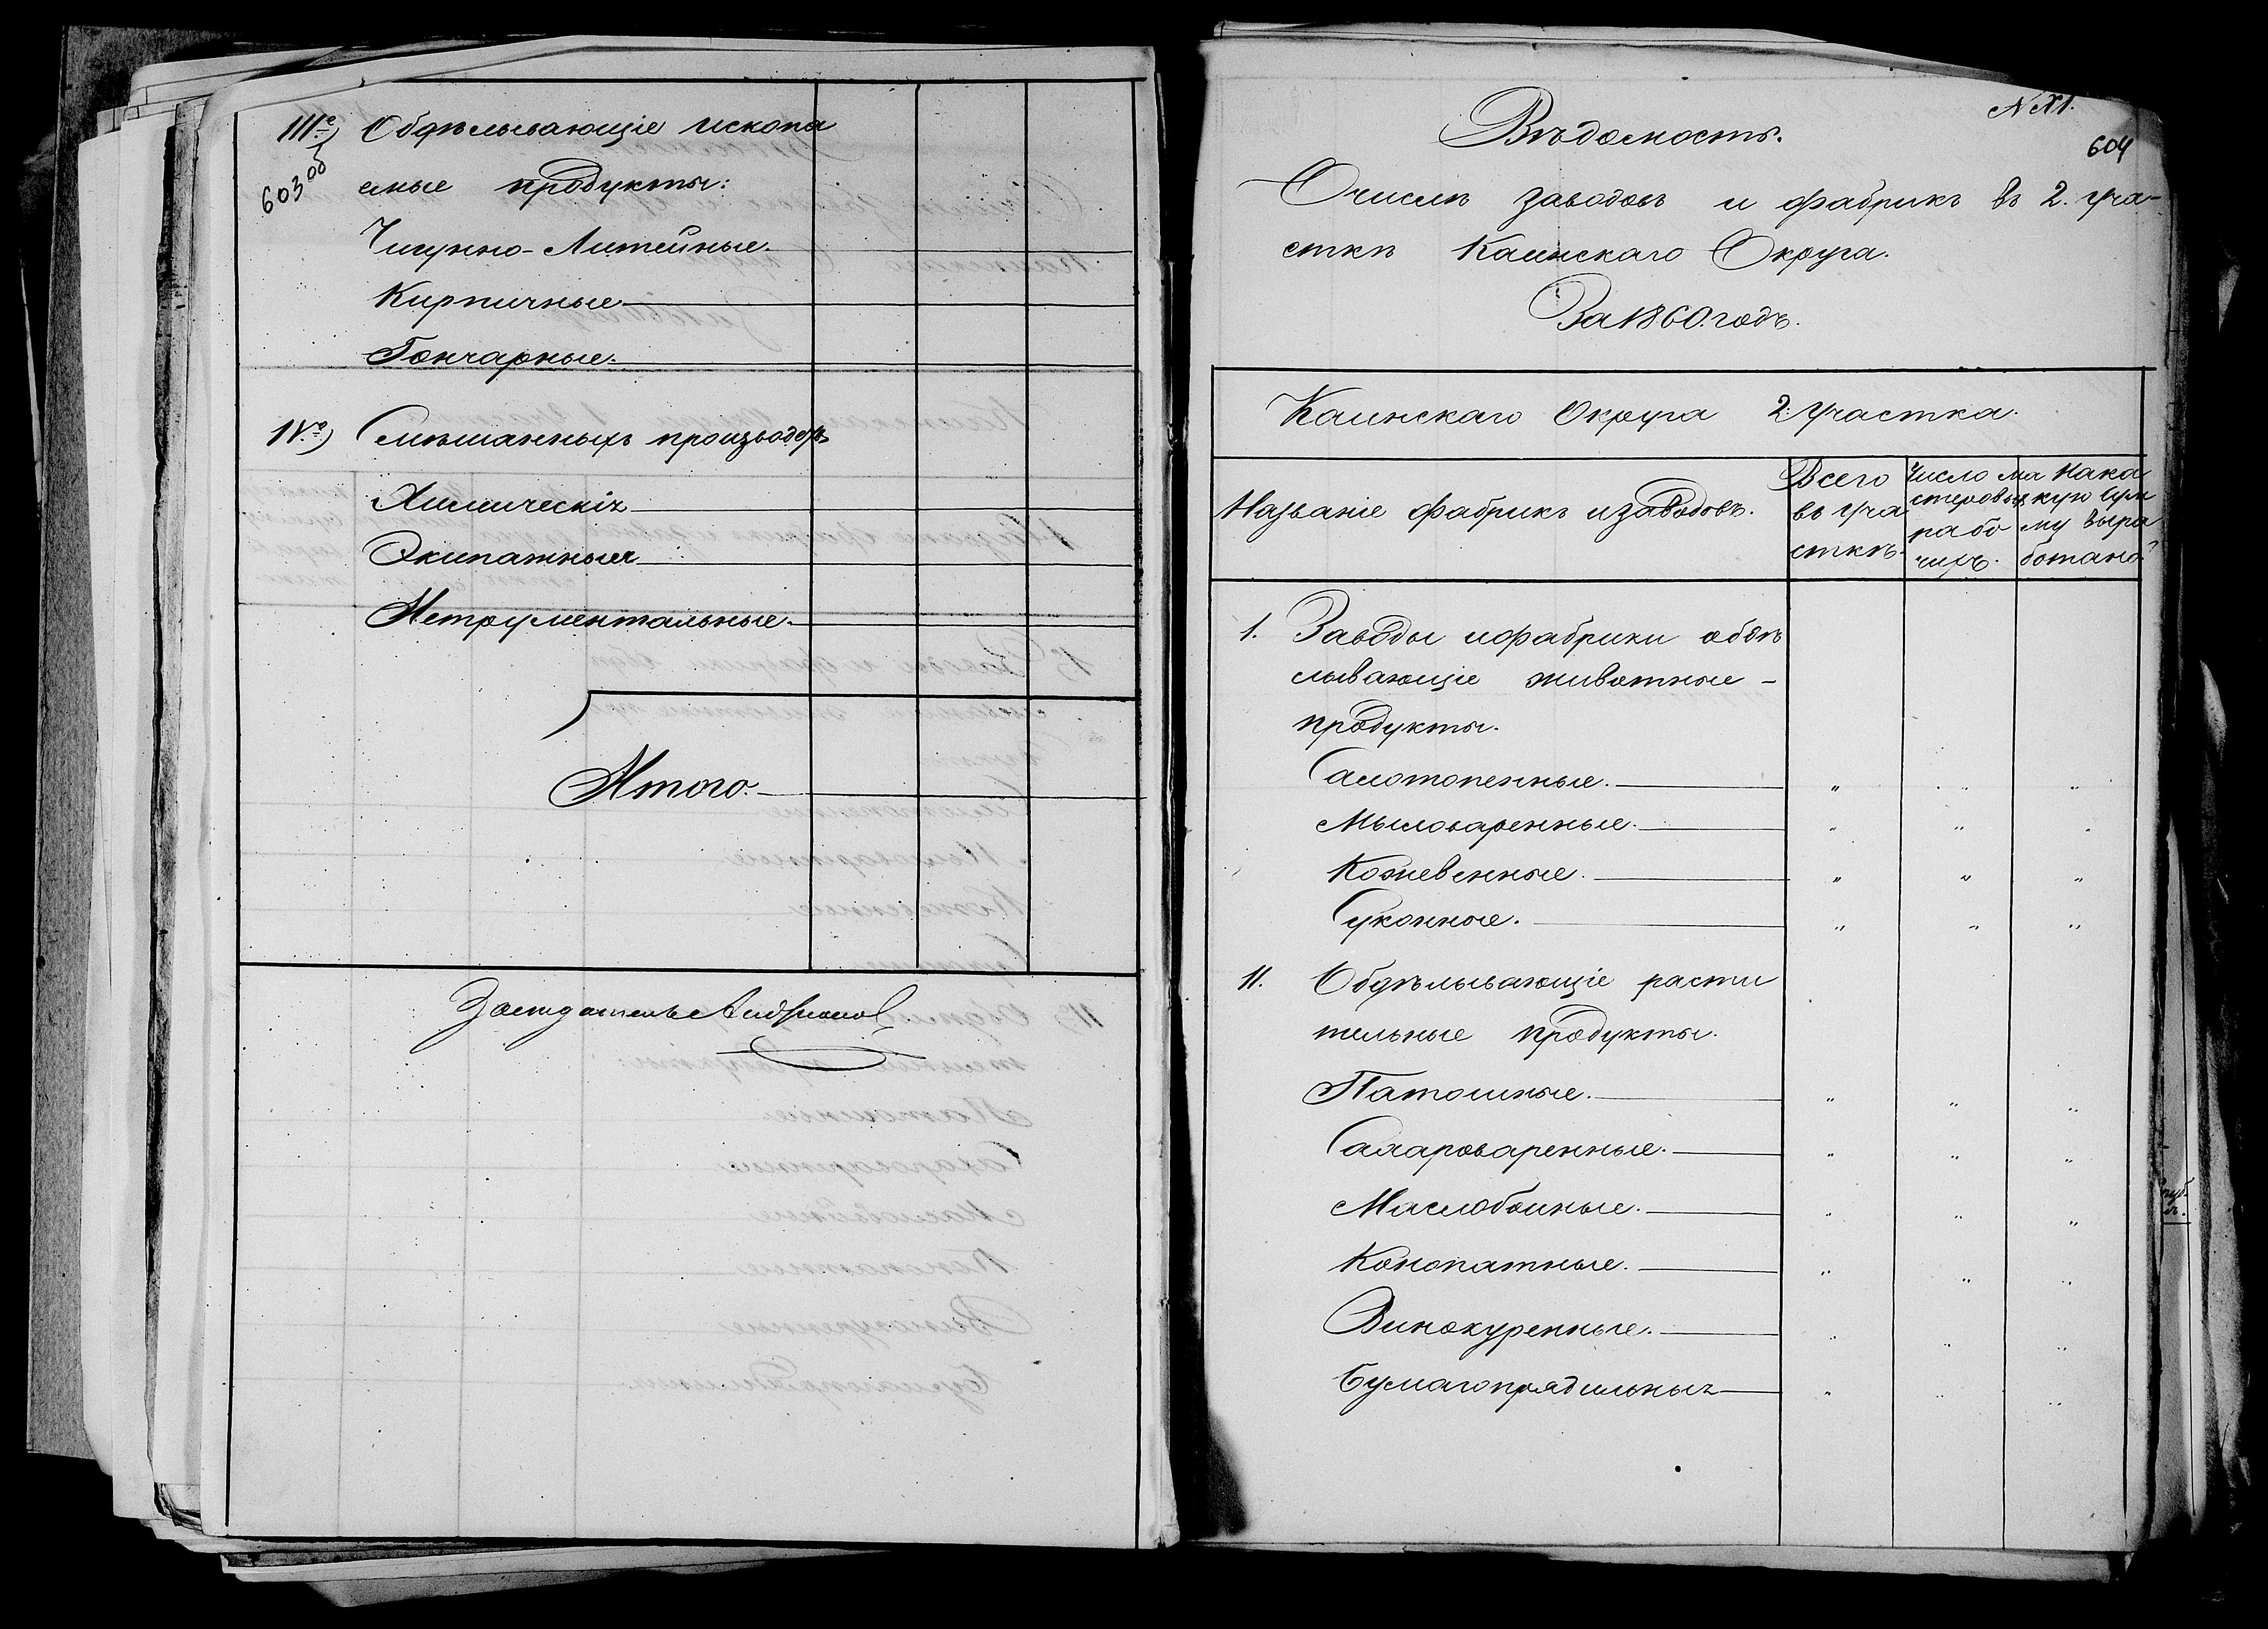 IIIе) Обдѣлывающіе ископа
603об
емые продукты:
Чугунно-Литейные.
Кирпичные
Гончарные.
IV.е) Смѣшанныхъ производствъ
Химическіе
Экипажныя
Иструментальные.
Итого.
Засѣдатель
N XI.
604
Вѣдомость.
О числѣ заводовъ и фабрикъ въ 2. уча-
сткѣ Каинскаго Округа.
За 1860. годъ.
Каинскаго Округа 2. Участка.
Названіе фабрикъ и заводовъ.
Всего
въ уча
сткѣ.
Число ма
стеровыхъ
рабо
чихъ.
На ка
кую сум
му выра
ботано?
1. Заводы и фабрики обдѣ
лывающіе животные -
продукты.
Салотопенные. „ „ „
Мыловаренные. „ „ „
Кожевенные. „ „ „
Суконные. „ „ „
11. Обдѣлывающіе расти
тельные продукты.
Патошные. „ „ „
Сахароваренные. „ „ „
Маслобойные. „ „ „
Конопатные. „ „ „
Винокуренные. „ „ „
Бумагопрядильныя „ „ „